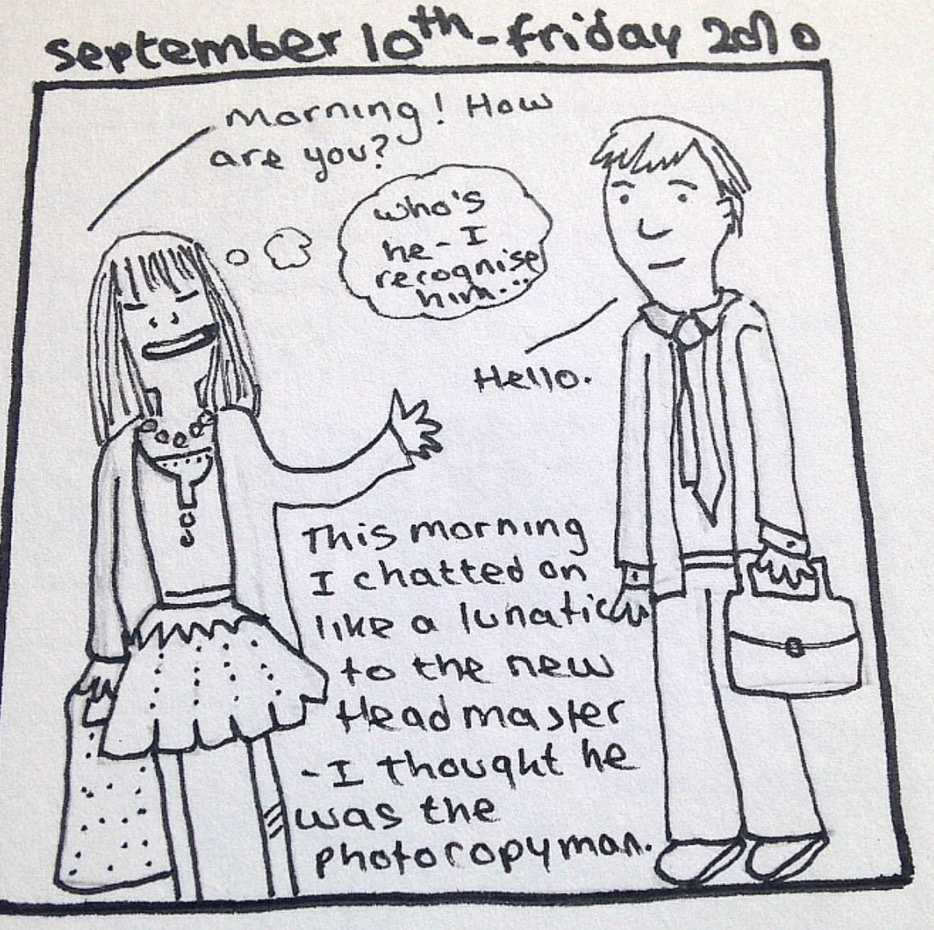 september 10th - friday 2010
Morning! How
are you?
who's
he - I
recognise
him...
Hello.
This morning
I chatted on
like a lunatic
to the new
Headmaster
- I thought he
was the
photocopyman.